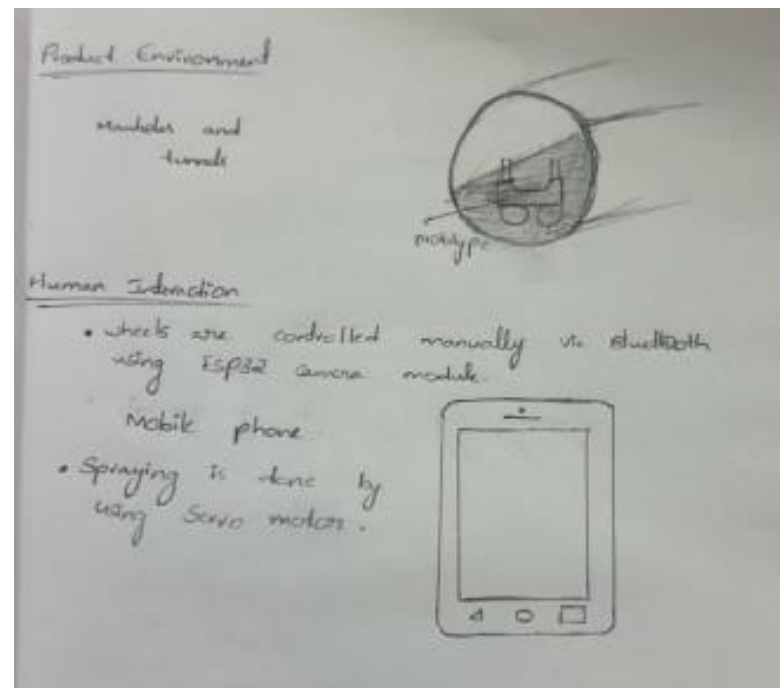 Product Environment
Manholes and
tunnels
prototype
Human Interaction
• wheels are controlled manually via Bluetooth
using ESP32 camera module.
Mobile phone
• Spraying is done by
using Servo motors.